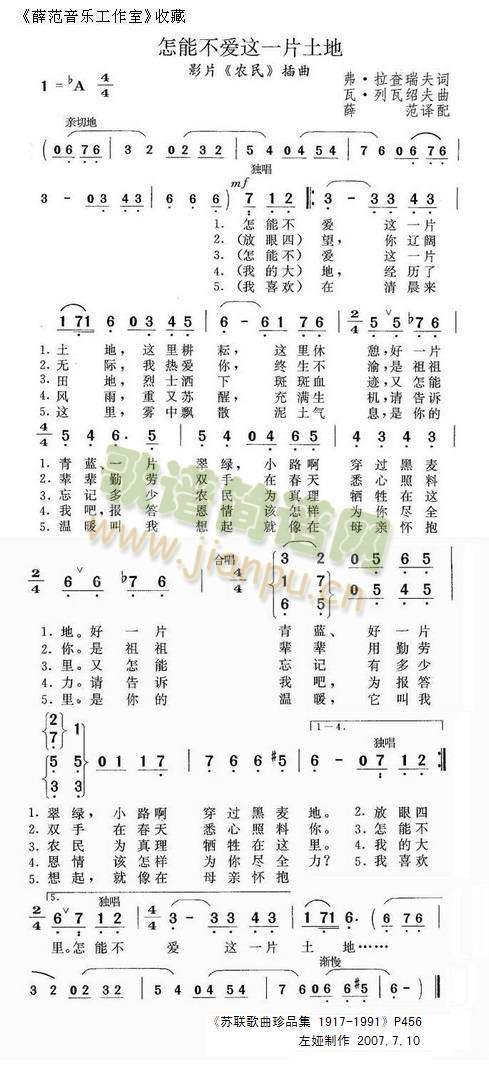 《薛范音乐工作室》收藏
怎能不爱这一片土地
影片《农民》插曲
弗·拉查瑞夫词
瓦·列瓦绍夫曲
薛 范译配
1=♭A 4/4
亲切地
(0676 | 3 2 0232 | 1 2 0176 |
独唱
3 - 0343 | 0343 - | 6 6 6) mf 7 12 ‖: 3 - 33 43 |
1.怎能不 爱 这一片
2.(放眼四)望, 你辽阔
3.(怎能不)爱 这一片
4.(我的大)地, 经历了
5.(我喜欢)在 清晨来
1 71 6 03 45 | 6 - 61 76 | 2/4 5 5 ♭76 |
1.土 地, 这里耕 耘, 这里休 憩,好一片
2.无 际, 我热爱 你, 终生不 渝,是祖祖
3.田 地, 烈士洒 下 斑斑血 迹,又怎能
4.风 雨, 重又苏 醒, 充满生 机,请告诉
5.这 里, 雾中飘 散 泥土气 息,是你的
4/4 5 46. 5 | 5 4 02 45 | 43 43 |
1.青蓝、一片 翠绿, 小路啊 穿过黑麦
2.辈辈勤劳 双手 在春天 悉心照料
3.忘记多少 农民 为真理 牺牲在这
4.我吧,报答 恩情 该怎样 为你尽全
5.温暖叫我 想起 就像在 母亲怀抱
2/4 6 6 ♭76 | 合唱 4/4
3 2 05 65
1 7 04 54
6 5
1.地。好一片 青蓝、好一片
2.你。是祖祖 辈辈用勤劳
3.里。又怎能 忘记有多少
4.力。请告诉 我吧,为报答
5.里。是你的 温暖,它叫我
1.—4.
独唱
2 7 1
5 5
3 3
01 17 | 76 6 #5 | 6 - 07 12 :‖
1.翠绿, 小路啊 穿过黑麦地。 2.放眼四
2.双手 在春天 悉心照料你。 3.怎能不
3.农民 为真理 牺牲在这里。 4.我的大
4.恩情 该怎样 为你尽全力? 5.我喜欢
5.想起, 就像在 母亲怀抱
5.
独唱
2/4 6 7 12 | 4/4 3 - 33 43 | 1 71 6. |
里。怎能不 爱 这一片 土 地……
渐慢
《苏联歌曲珍品集 1917-1991》P456
左娅制作 2007.7.10
歌谱简谱网
www.jianpu.cn